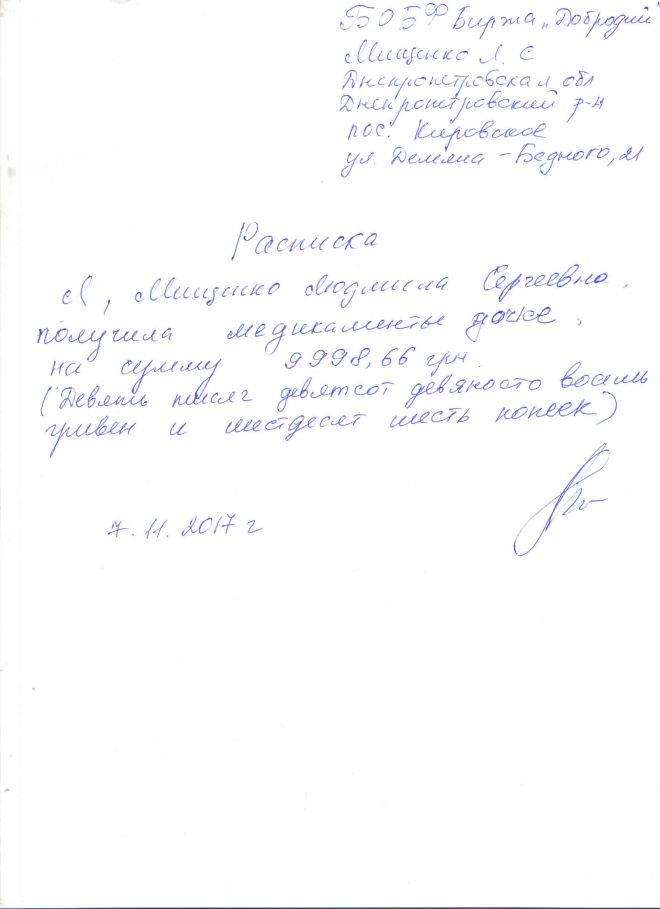 БОБФ Биржа „Добродий"
Мищенко Л. С
Днепропетровская обл
Днепропетровский р-н
пос. Кировское
ул. Демяна-Бедного, 21
Расписка
Я, Мищенко Людмила Сергеевна,
получила медикаменты дочке,
на сумму 9998,66 грн.
(Девять тысяч девятсот девяносто восемь
гривен и шестдесят шесть копеек)
7.11.2017 г